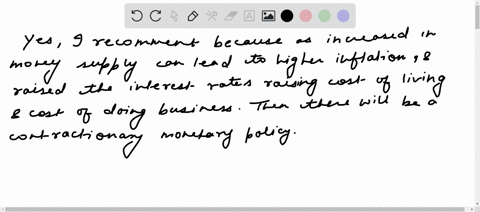 Yes, I recomment because as increased in
money supply can lead to higher inflation, &
raised the interest rates raising cost of living
& cost of doing business. Then there will be a
contractionary monetary policy.